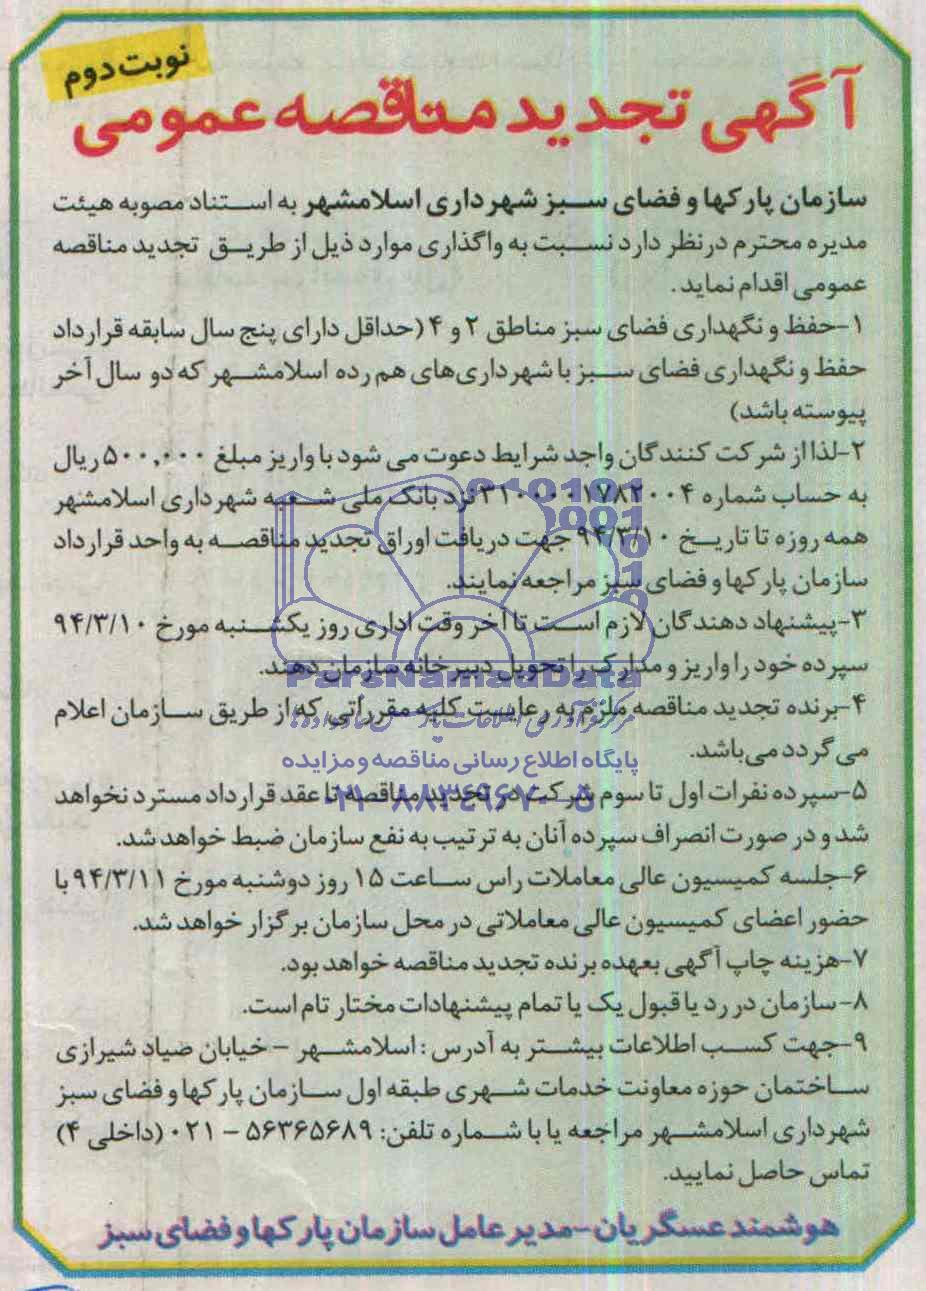 نوبت دوم
آگهی تجدید مناقصه عمومی
سازمان پارکها و فضای سبز شهرداری اسلامشهر به استناد مصوبه هیئت
مدیره محترم درنظر دارد نسبت به واگذاری موارد ذیل از طریق تجدید مناقصه
عمومی اقدام نماید.
۱-حفظ و نگهداری فضای سبز مناطق ۲ و ۴ (حداقل دارای پنج سال سابقه قرارداد
حفظ و نگهداری فضای سبز با شهرداری‌های هم رده اسلامشهر که دو سال آخر
پیوسته باشد)
۲-لذا از شرکت کنندگان واجد شرایط دعوت می شود با واریز مبلغ ۵۰۰,۰۰۰ ریال
به حساب شماره ۳۱۰۰۰۰۱۷۸۲۰۰۴ نزد بانک ملی شعبه شهرداری اسلامشهر
همه روزه تا تاریخ ۹۴/۳/۱۰ جهت دریافت اوراق تجدید مناقصه به واحد قرارداد
سازمان پارکها و فضای سبز مراجعه نمایند.
۳-پیشنهاد دهندگان لازم است تا آخر وقت اداری روز یکشنبه مورخ ۹۴/۳/۱۰
سپرده خود را واریز و مدارک را تحویل دبیرخانه سازمان دهند.
ParsNamadData
۴-برنده تجدید مناقصه ملزم به رعایت کلیه مقرراتی که از طریق سازمان اعلام
می گردد می‌باشد.
پایگاه اطلاع رسانی مناقصه و مزایده
۵-سپرده نفرات اول تا سوم شرکت در تجدید مناقصه تا عقد قرارداد مسترد نخواهد
۰۲۱-۸۸۳۴۹۶۷۰
شد و در صورت انصراف سپرده آنان به ترتیب به نفع سازمان ضبط خواهد شد.
۶-جلسه کمیسیون عالی معاملات راس ساعت ۱۵ روز دوشنبه مورخ ۹۴/۳/۱۱ با
حضور اعضای کمیسیون عالی معاملاتی در محل سازمان برگزار خواهد شد.
۷-هزینه چاپ آگهی بعهده برنده تجدید مناقصه خواهد بود.
۸-سازمان در رد یا قبول یک یا تمام پیشنهادات مختار تام است.
۹-جهت کسب اطلاعات بیشتر به آدرس : اسلامشهر - خیابان صیاد شیرازی
ساختمان حوزه معاونت خدمات شهری طبقه اول سازمان پارکها و فضای سبز
شهرداری اسلامشهر مراجعه یا با شماره تلفن: ۵۶۳۶۵۶۸۹ - ۰۲۱ (داخلی ۴)
تماس حاصل نمایید.
هوشمند عسگریان-مدیرعامل سازمان پارکها و فضای سبز